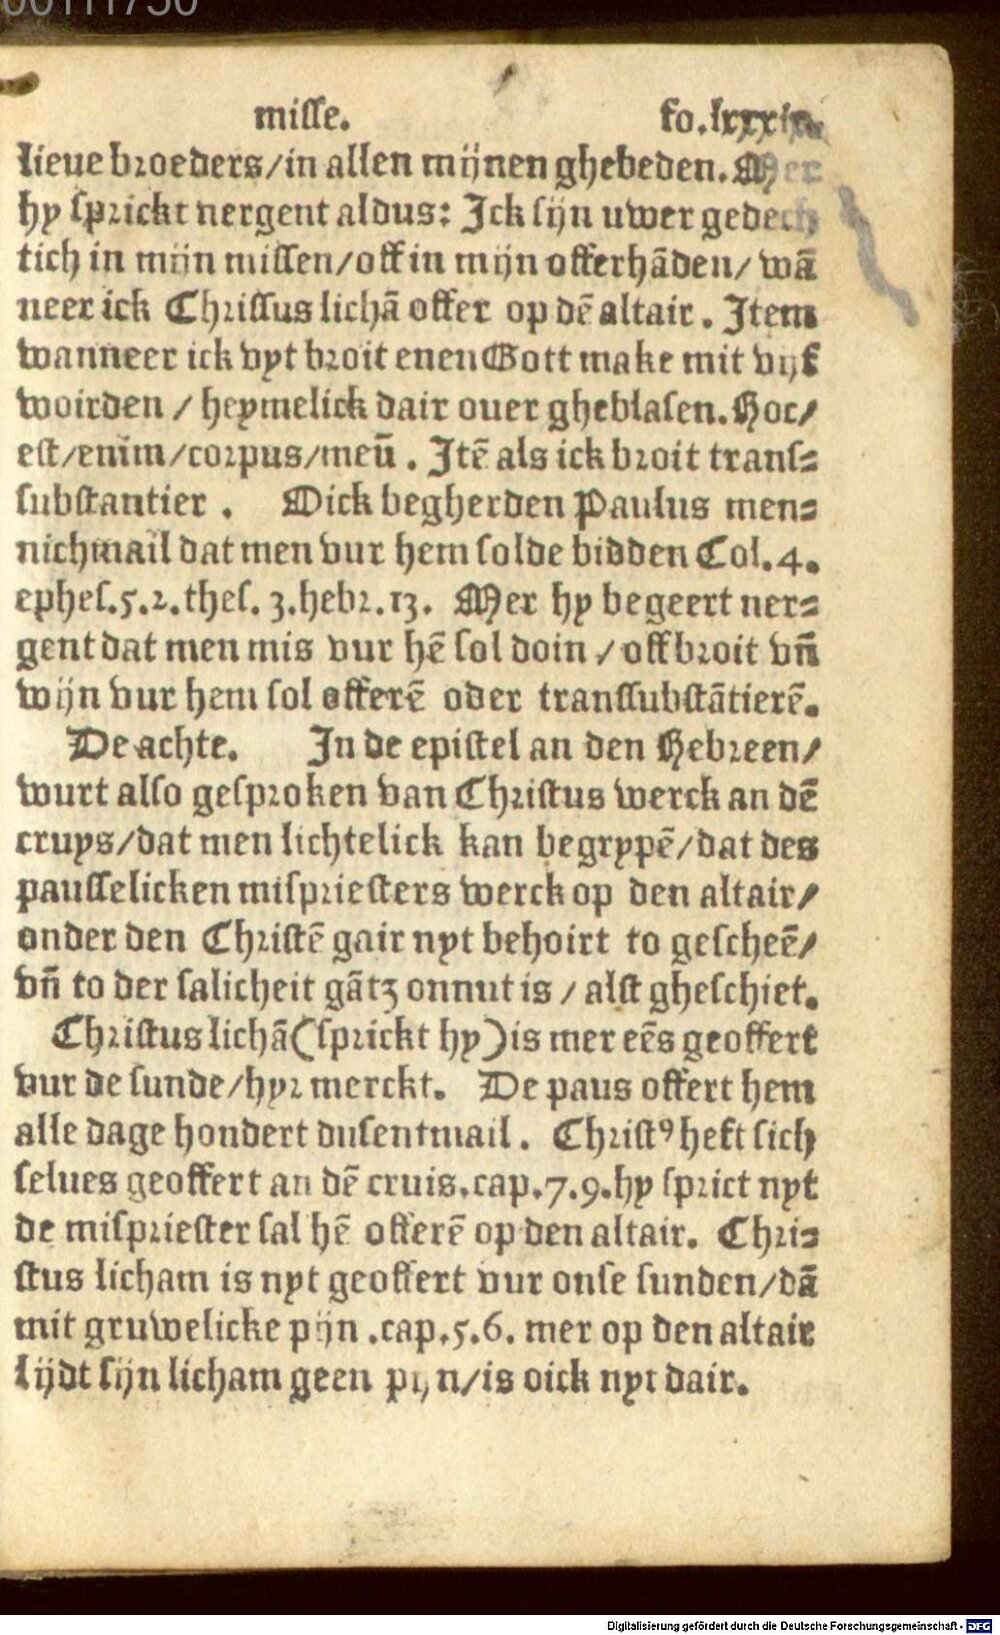 00111750
misse. fo.lxxxix.
lieue broeders/in allen mijnen ghebeden. Mer
hy sprickt nergent aldus: Jck sijn uwer gedech
tich in mijn missen/off in mijn offerhāden/ wā
neer ick Chrissus lichā offer op dē altair. Jtem
wanneer ick vyt broit enen Gott make mit vijf
woirden / heymelick dair ouer gheblasen. Hoc/
est/enim/corpus/meū. Jtē als ick broit trans⸗
substantier. Dick begherden Paulus men⸗
nichmail dat men vur hem solde bidden Col.4.
ephes.5.2.thes.3.hebr.13. Mer hy begeert ner⸗
gent dat men mis vur hē sol doin / off broit vn̄
wijn vur hem sol offerē oder transsubstātierē.
De achte. Jn de epistel an den Hebreen/
wurt also gesproken van Christus werck an dē
cruys/dat men lichtelick kan begrypē/dat des
pausselicken mispriesters werck op den altair/
onder den Christē gair nyt behoirt to gescheē/
vn̄ to der salicheit gātz onnut is / alst gheschiet.
Christus lichā(sprickt hy)is mer eēs geoffert
vur de sunde/hyr merckt. De paus offert hem
alle dage hondert dusentmail. Christꝰ heft sich
selues geoffert an dē cruis.cap.7.9.hy sprict nyt
de mispriester sal hē offerē op den altair. Chri⸗
stus licham is nyt geoffert vur onse sunden/dā
mit gruwelicke pijn.cap.5.6. mer op den altair
lijdt sijn licham geen pijn/is oick nyt dair.
Digitalisierung gefördert durch die Deutsche Forschungsgemeinschaft - DFG